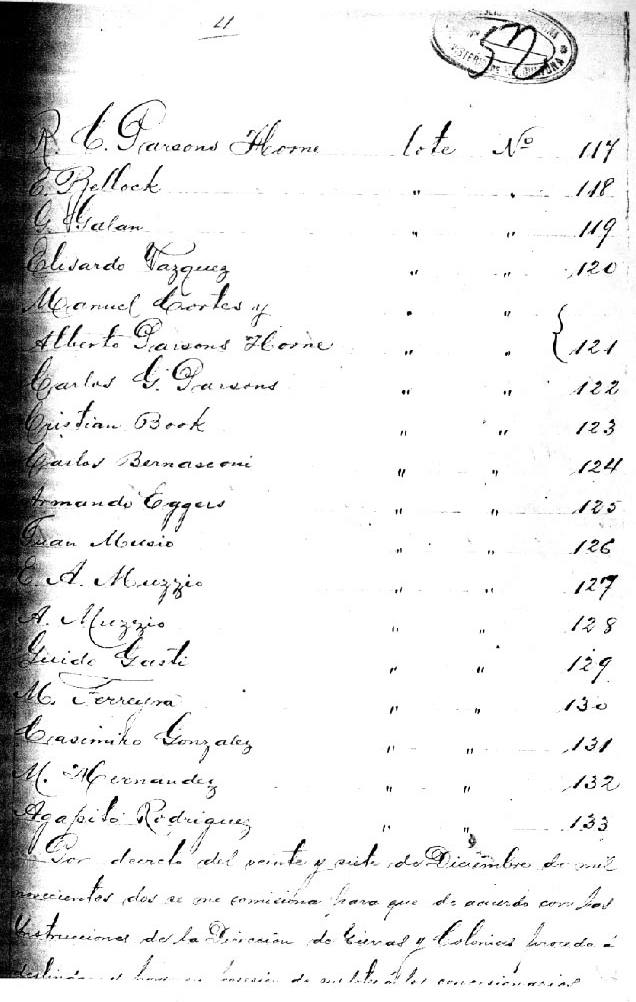 4
57
R. C. Parsons Horne lote Nº 117
E. Bellock " " 118
G. Galan " " 119
Elisardo Vazquez " " 120
Manuel Cortes y " "
Alberto Parsons Horne " " } 121
Carlos G. Parsons " " 122
Cristian Book " " 123
Carlos Bernasconi " " 124
Armando Eggers " " 125
Juan Musio " " 126
E. A. Muzzio " " 127
A. Muzzio " " 128
Guido Gasti " " 129
M. Ferreyra " " 130
Casimiro Gonzalez " " 131
M. Hernandez " " 132
Agapito Rodriguez " " 133
Por decreto del veinte y siete de Diciembre de mil
novecientos dos se me comisiona para que de acuerdo con las
Instrucciones de la Direccion de Tierras y Colonias proceda á
deslindar posesion de los concesionarios